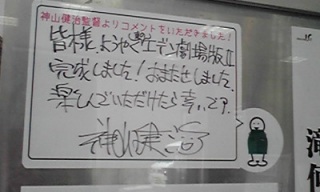 神山健治監督よりコメントをいただきました!
皆様、おかげ様でエデン劇場版II
完成しました!おまたせしました。
楽しんでいただけたら幸いです。
神山健治
滝